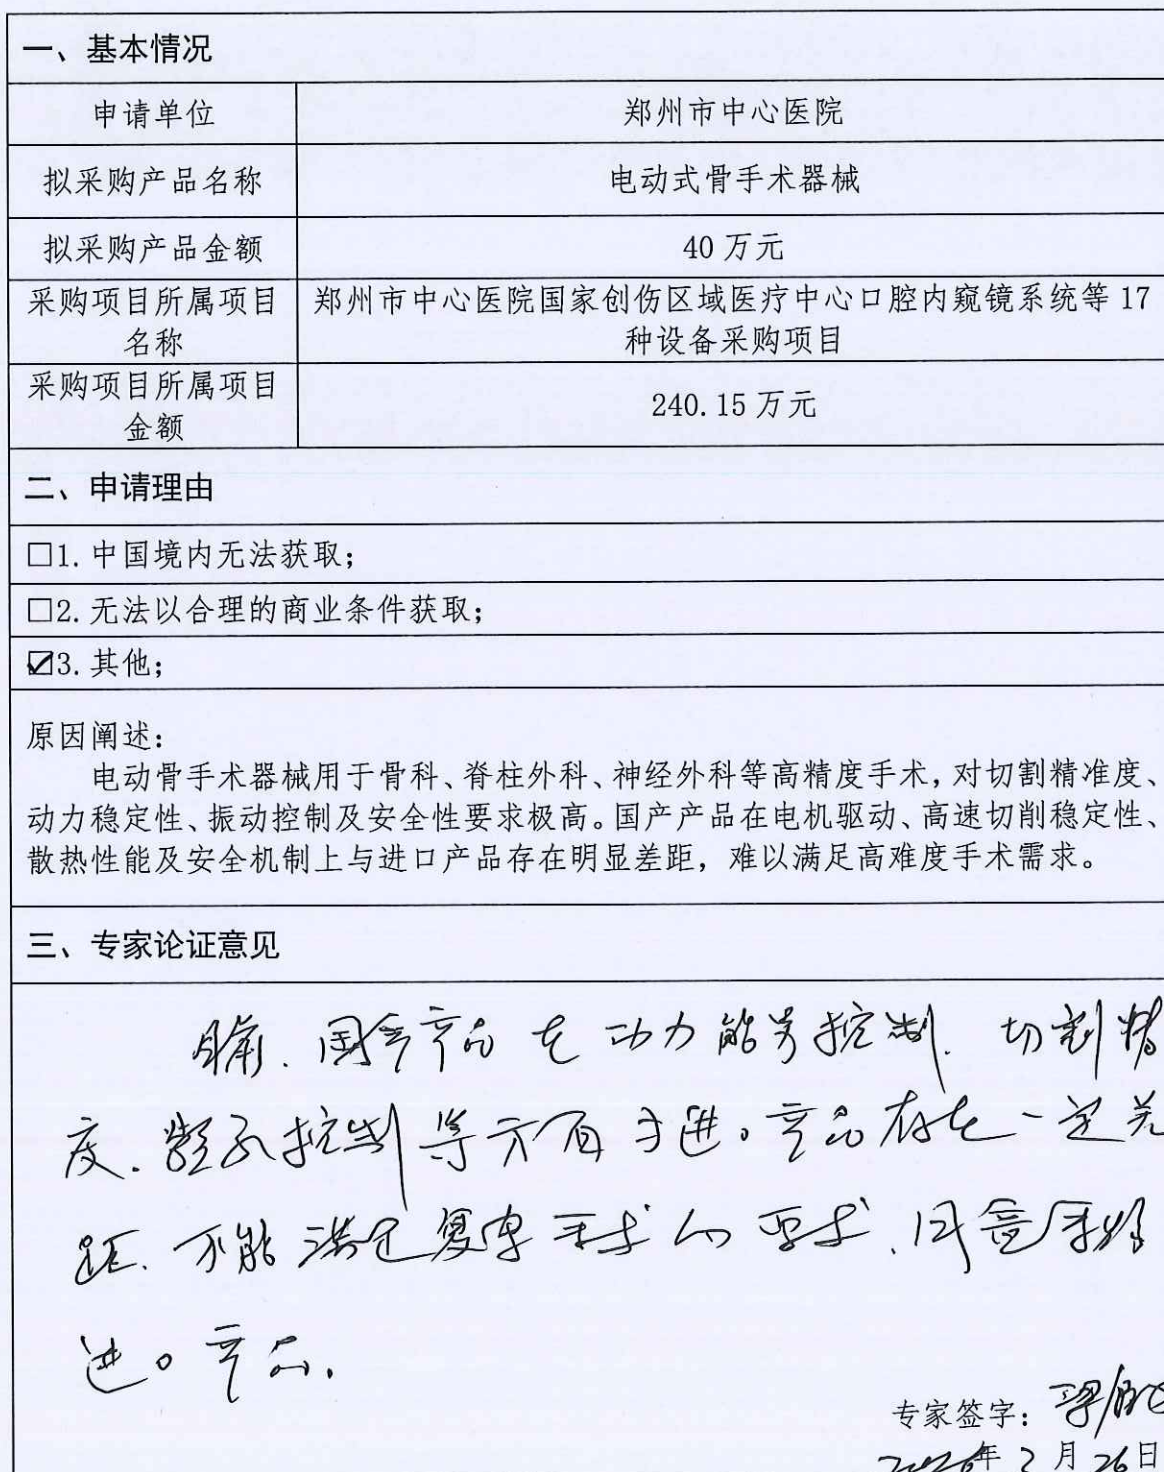 一、基本情况
申请单位
郑州市中心医院
拟采购产品名称
电动式骨手术器械
拟采购产品金额
40万元
采购项目所属项目
名称
郑州市中心医院国家创伤区域医疗中心口腔内窥镜系统等17
种设备采购项目
采购项目所属项目
金额
240.15万元
二、申请理由
□1.中国境内无法获取；
□2.无法以合理的商业条件获取；
☑3.其他；
原因阐述：
电动骨手术器械用于骨科、脊柱外科、神经外科等高精度手术，对切割精准度、
动力稳定性、振动控制及安全性要求极高。国产产品在电机驱动、高速切削稳定性、
散热性能及安全机制上与进口产品存在明显差距，难以满足高难度手术需求。
三、专家论证意见
目前.国产产品在动力能量控制.切割精
度.控制等方面与进口产品存在一定差
距.不能满足复杂手术的要求.同意采购
进口产品.
专家签字：
年2月26日